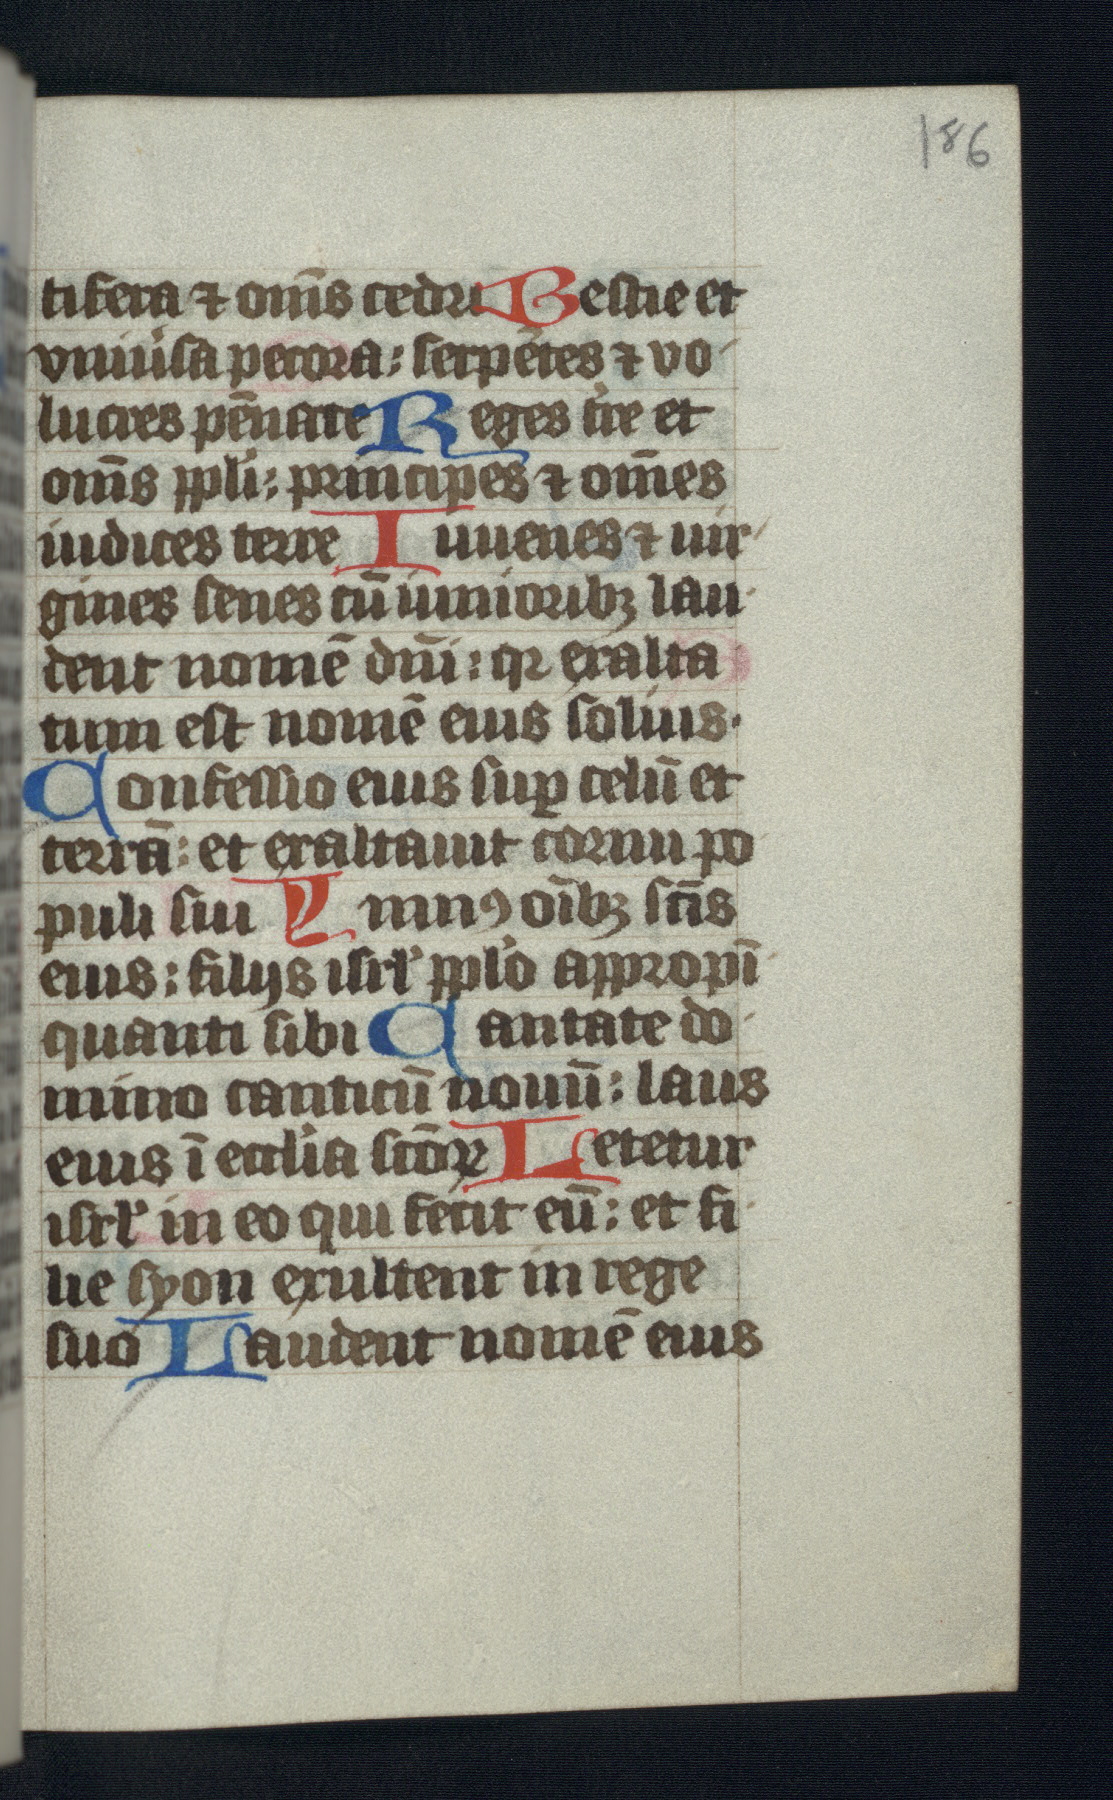 186
tifera ⁊ om̄s cedri Bestie et
vniu̾sa pecora: serpētes ⁊ vo
lucres pēnate Reges t̾re et
om̄s ppl̓i: principes ⁊ om̄es
iudices terre Iuuenes ⁊ uir
gines senes cū iunioribꝫ lau
dent nomē dn̄i: qꝛ exalta
tum est nomē eius solius.
Confessio eius suꝑ celū et
terrā: et exaltauit cornu po
puli sui Ymnꝯ oībꝫ scīs
eius: filijs isrl̓ ppl̓o appropī
quanti sibi Cantate do
mino canticū nouū: laus
eius ī eccl̓ia scōꝝ Letetur
isrl̓ in eo qui fecit eū: et fi
lie syon exultent in rege
suo Laudent nomē eius